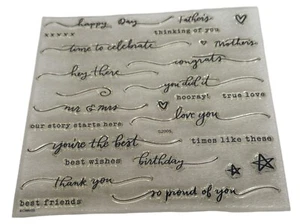 happy Day Father's
xxxxx thinking of you
time to celebrate Mother's
hey there congrats
you did it
mr & mrs hooray! true love
our story starts here love you
you're the best times like these
best wishes birthday
thank you
so proud of you
best friends